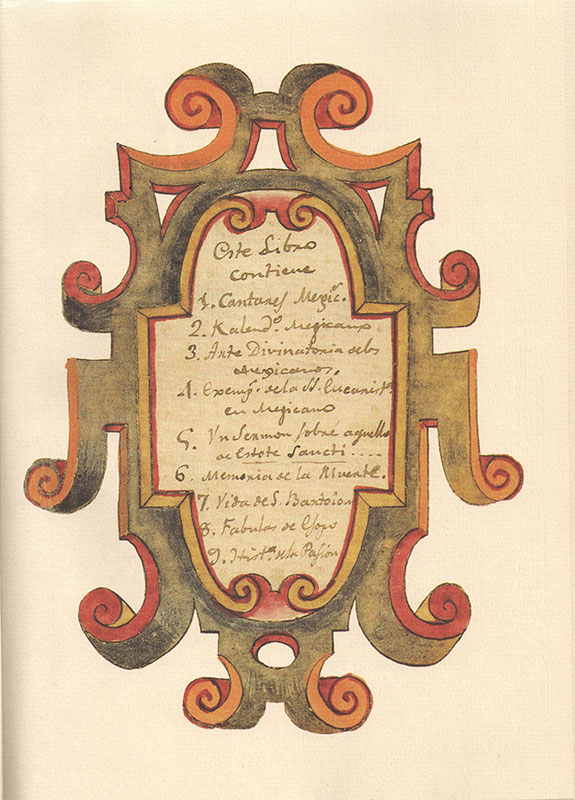 Este Libro
contiene
1. Cantares Mexic.
2. Kalendº. Megicano
3. Arte Divinatoria de los
Mexicanos.
4. Exempˢ. de la SS. Eucaristª.
en Megicano
5. Vn Sermon sobre aquello
de Estote Sancti ....
6. Memoria de la Muerte.
7. Vida de S. Bartolom
8. Fabulas de Esopo
9. Histª. de la Pasión